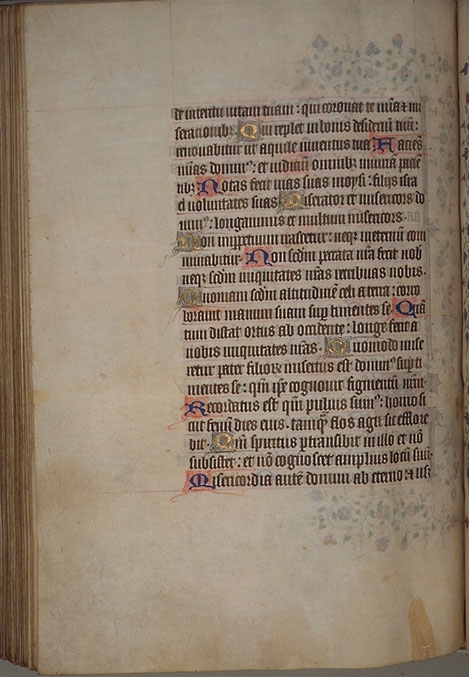 de interitu uitam tuam: qui coronat te mia & mi
seracionibȝ. Qui replet in bonis desideriũ tuũ:
renouabitur ut aquile iuuentus tua. Facies
mias domin⁹: et iudiciũ omnibȝ iniuriã pacie
tibȝ. Notas fecit uias suas moysi: filijs isra
el uoluntates suas. Miserator et misericors do
min⁹: longanimis et multum misericors.
Non imppetuum irascetur: neqȝ ineternũ com
minabitur. Non scdm peccata nra fecit nob
neqȝ scdm iniquitates nras retribuit nobis.
Quoniam scdm altitudinẽ celi a terra: corro
borauit miam suam sup timentes se. Quã
tum distat ortus ab occidente: longe fecit a
nobis iniquitates nras. Quomodo mise
retur pater filiorȝ misertus est domin⁹ supti
mentes se: qm ipse cognouit figmentũ nrm.
Recordatus est qm puluis sum⁹: homo si
cut fenũ dies eius. tamqȝ flos agri sic efflore
bit. Qm spiritus ptransibit in illo et nõ
subsistet: et nõ cognoscet amplius locũ suũ.
Misericordia autẽ domini ab eterno: & usȝ